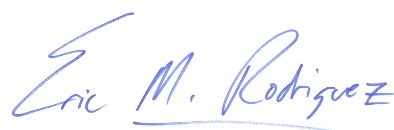 Eric M. Rodriguez